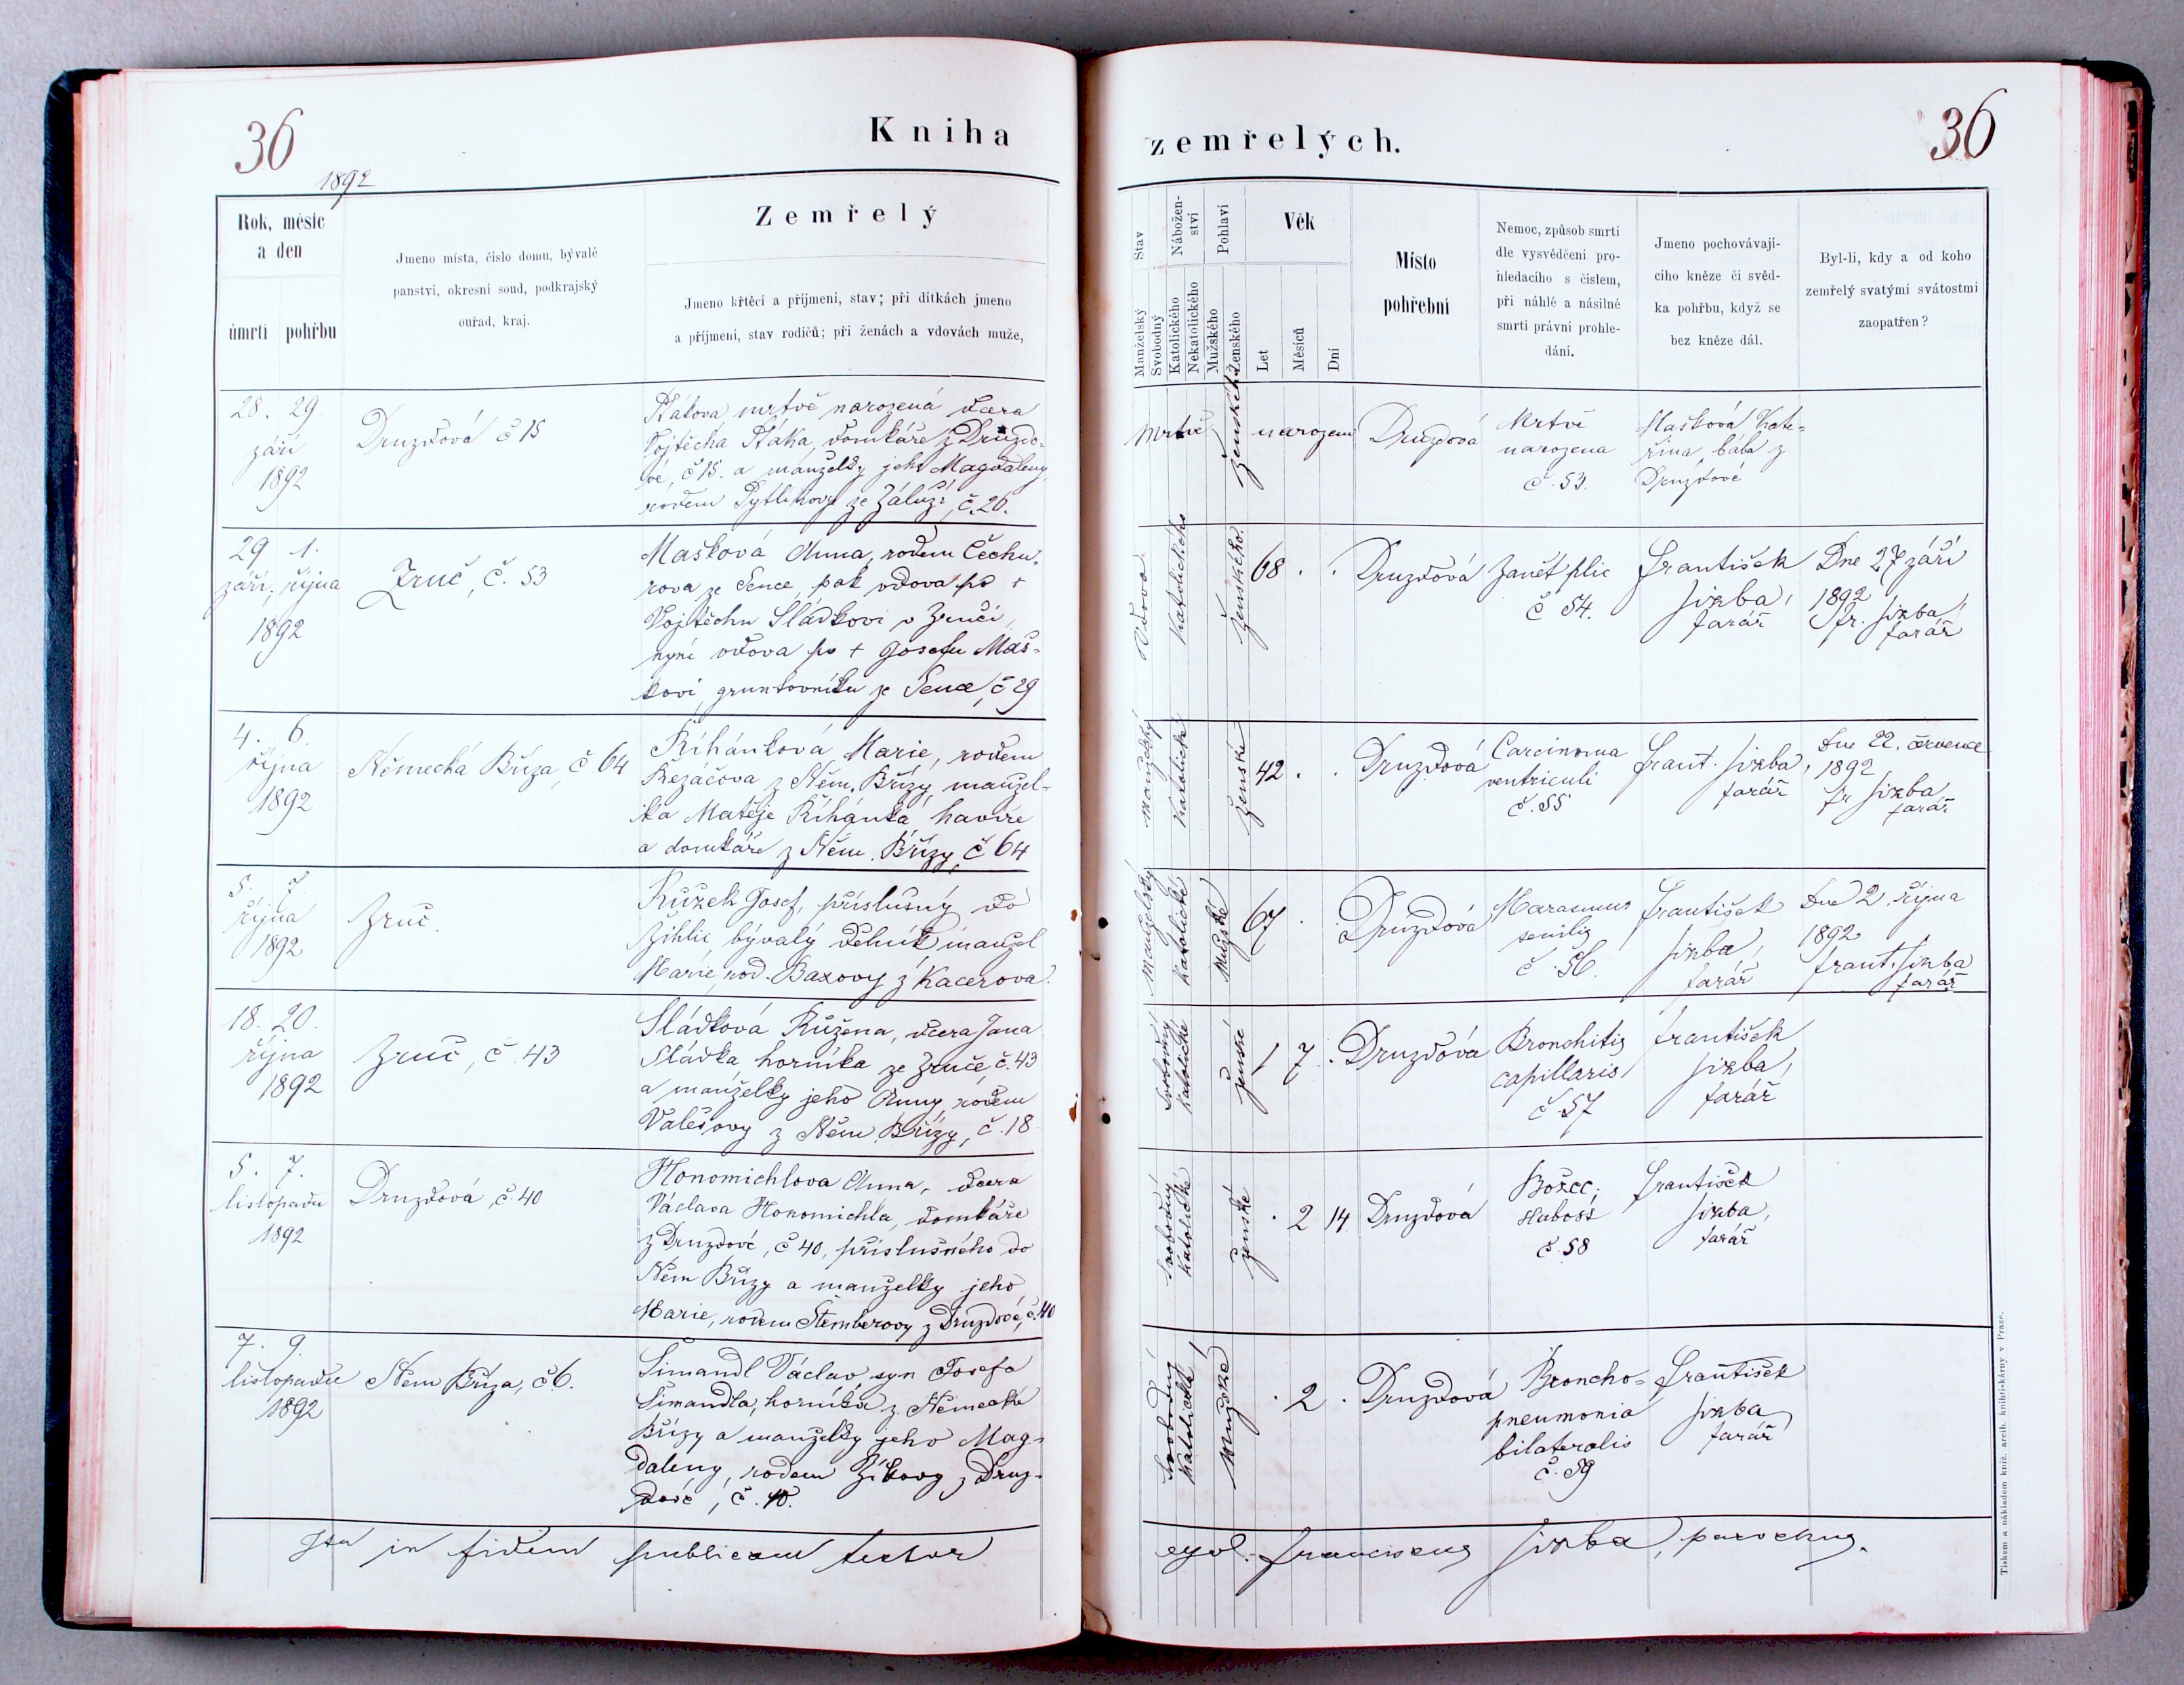 36
1892
Kniha
zemřelých.
36
Rok, měsíc
a den
úmrtí pohřbu
Jmeno místa, číslo domu, bývalé
panství, okresní soud, podkrajský
ouřad, kraj.
Zemřelý
Jmeno křtěcí a příjmení, stav; při dítkách jmeno
a příjmení, stav rodičů; při ženách a vdovách muže,
Stav
Manželský
Svobodný
Nábožen-
ství
Katolického
Nekatolického
Pohlaví
Mužského
Ženského
Věk
Let
Měsíců
Dní
Místo
pohřební
Nemoc, způsob smrti
dle vysvědčení pro-
hledacího s číslem,
při náhlé a násilné
smrti právní prohle-
dání.
Jmeno pochovávají-
cího kněze či svěd-
ka pohřbu, když se
bez kněze dál.
Byl-li, kdy a od koho
zemřelý svatými svátostmi
zaopatřen?
28. 29.
září
1892
Druzdová č 15
mrtvě narozená dcera
Vojtěcha domkáře z Druzdo-
vé, č 15. a manželky jeho Magdaleny
rodem Pytlíkovy ze Záluží, č. 26.
Mrtvě narozen
ženského
Druzdová
Mrtvě
narozena
č. 53.
Mašková Kate-
řina, bába z
Druzdové
29. 1.
září, října
1892
Zruč, č. 53
Mašková Anna, rodem Čechu-
rova ze Sence, pak vdova po +
Vojtěchu Sladkovi v Zruči,
nyní vdova po + Josefu Maš-
kovi, gruntovníku ze Sence, č 29
Vdova
Katolického
ženského.
68 . .
Druzdová
Zánět plic
č 54.
František
Jirba,
farář
Dne 27 září
1892
fr. Jirba,
farář
4. 6.
října
1892
Německá Bříza, č 64
Říhánková Marie, rodem
Řezáčova z Něm. Břízy, manžel-
ka Matěje Říhánka havíře
a domkáře z Něm. Břízy č 64
manželský
Katolické
ženské
42 . .
Druzdová
Carcinoma
ventriculi
č. 55
Frant. Jirba,
farář
Dne 22. července
1892
fr Jirba,
farář
5. 7.
října
1892
Zruč.
Růžek Josef, příslušný do
Žihlic bývalý dělník manžel
Marie, rod. Baxovy z Kacerova.
Manželský
Katolické
Mužské
67 .
Druzdová
Marasmus
senilis
č. 56.
František
Jirba,
farář
Dne 2. října
1892
frant. Jirba
farář
18. 20.
října
1892
Zruč, č. 43
Sládková Růžena, dcera Jana
Sládka, horníka ze Zruče, č. 43
a manželky jeho Anny rodem
Valešovy z Něm. Břízy, č. 18
Svobodný
Katolické
ženské
1 7 .
Druzdová
Bronchitis
capillaris
č 57
František
Jirba,
farář
5. 7.
listopadu
1892
Druzdová, č 40
Honomichlova Anna, dcera
Václava Honomichla, domkáře
z Druzdové, č 40, příslušného do
Něm Břízy a manželky jeho
Marie, rodem Štemberovy z Druzdové, č. 40
Svobodný
Katolické
ženské
. 2 14.
Druzdová
Božec,
č. 58
František
Jirba,
farář
7. 9.
listopadu
1892
Něm Bříza, č 6.
Šimandl Václav syn Josefa
Šimandla, horníka z Německé
Břízy a manželky jeho Mag-
daleny, rodem Žikovy z Druz-
dové, č. 10.
Svobodný
Katolické
Mužské
. 2 .
Druzdová
Broncho-
pneumonia
bilateralis
č. 59
František
Jirba
farář
Ita in fidem publicam testor
Franciscus Jirba, parochus.
Tiskem a nákladem kníž. arcib. knihtiskárny v Praze.